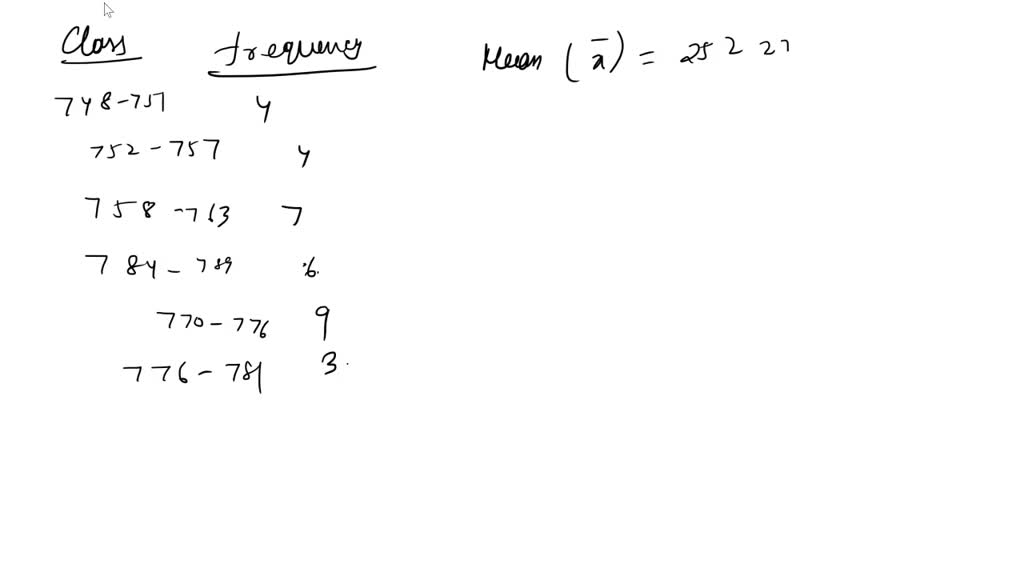 Class frequency
748-757 4
752-757 4
758-763 7
784-789 6.
770-776 9
776-781 3.
Mean (x̄) = 252 27